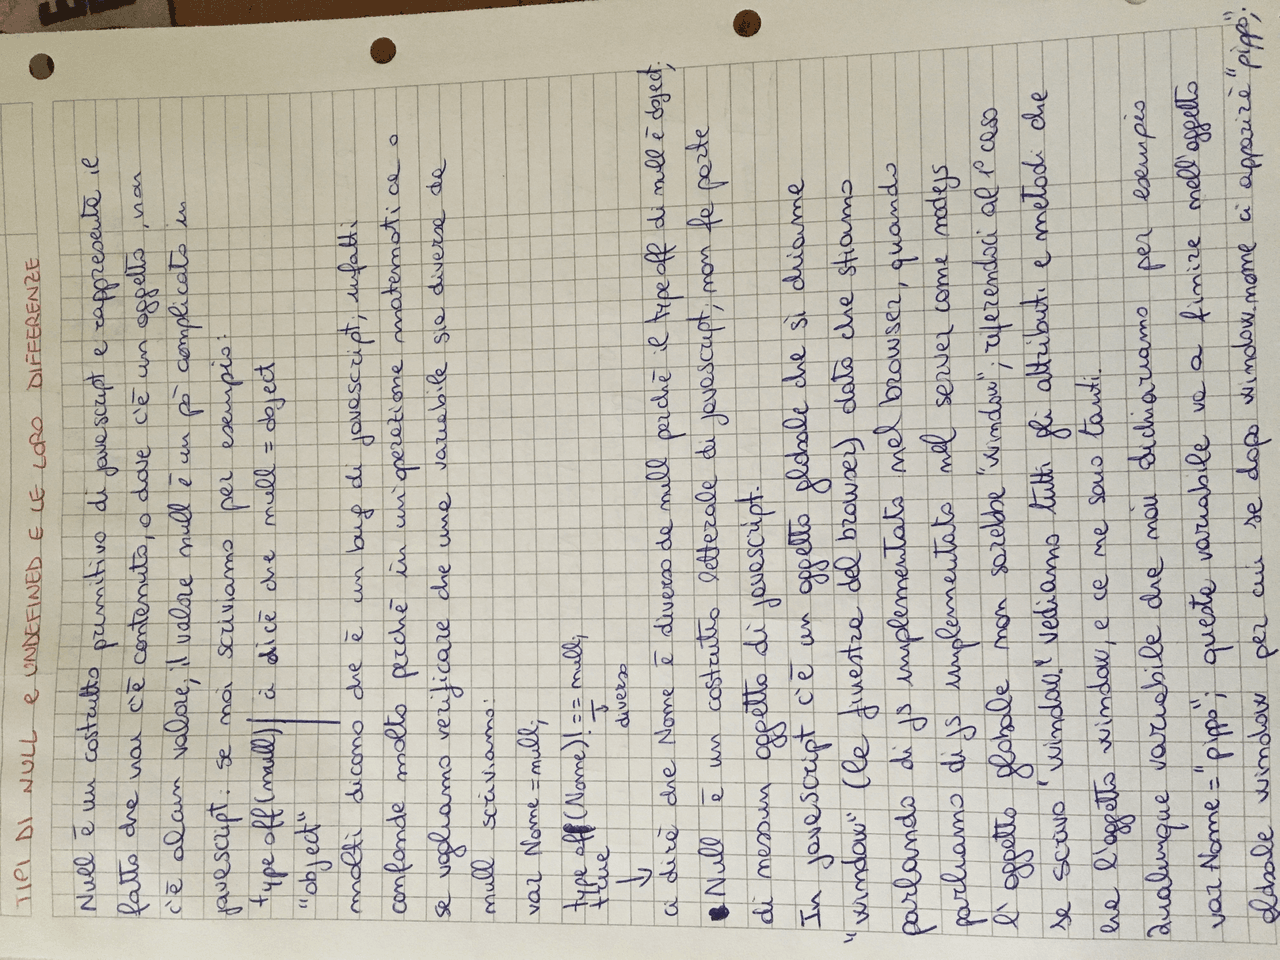 TIPI DI NULL e UNDEFINED E LE LORO DIFFERENZE
Null è un costrutto primitivo di javascript e rappresenta il
fatto che non c'è contenuto, o dove c'è un oggetto, non
c'è alcun valore; il valore null è un pò complicato in
javascript: se noi scriviamo per esempio:
type off (null) ci dice che null = object
"object"
molti dicono che è un bug di javascript, infatti
confonde molto perchè in un'operazione matematica o
se vogliamo verificare che una variabile sia diversa da
null scriviamo:
var Nome = null;
type off (Nome) ! == null;
true
diverso
ci dirà che Nome è diverso da null perchè il type off di null è object;
Null è un costrutto letterale di javascript, non fa parte
di nessun oggetto di javascript.
In javascript c'è un oggetto globale che si chiama
"window" (la finestra del browser) dato che stiamo
parlando di js implementato nel browser, quando
parliamo di js implementato nel server come nodejs
l'oggetto globale non sarebbe "window"; riferendoci al 1° caso
se scrivo "window." vediamo tutti gli attributi e metodi che
ha l'oggetto window, e ce ne sono tanti.
Qualunque variabile che noi dichiariamo per esempio
var Nome = "pippo"; questa variabile va a finire nell'oggetto
globale window per cui se dopo window.nome ci apparirà "pippo";